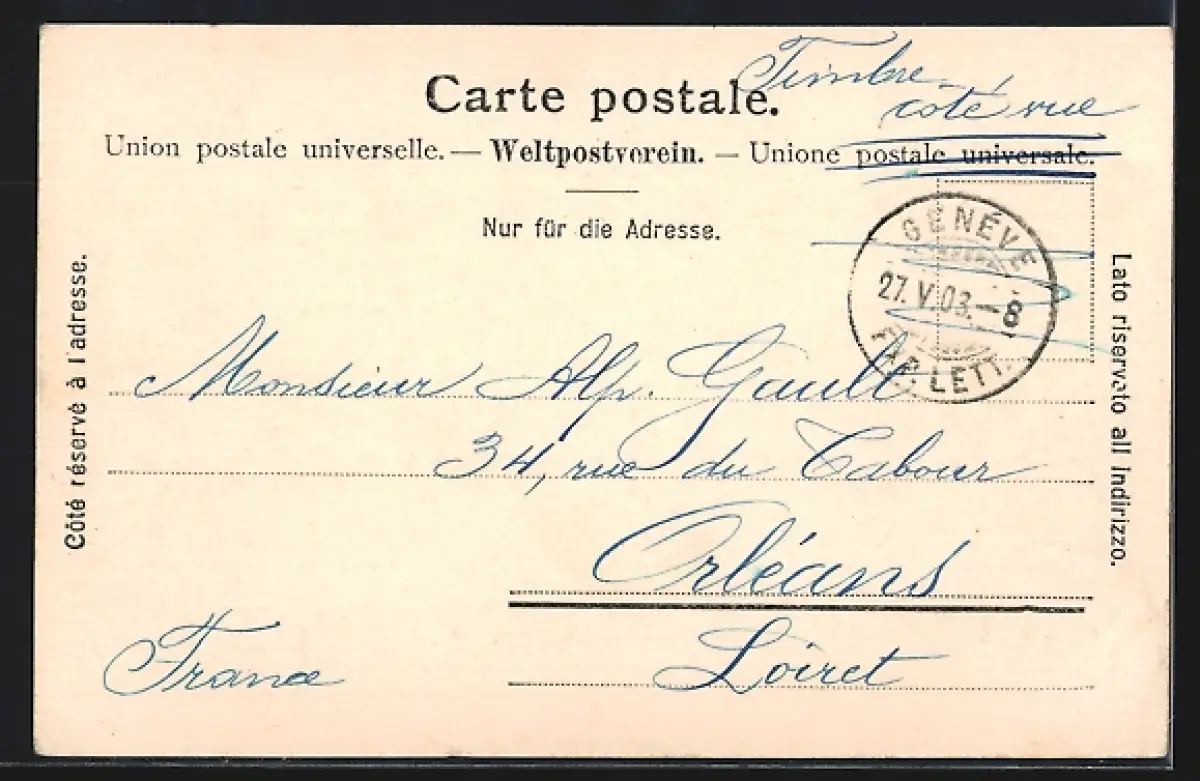 Timbre
côté vue
Carte postale.
Union postale universelle. — Weltpostverein. — Unione postale universale.
Nur für die Adresse.
GENÉVE
27.V.03.–8
EXP. LETT.
Côté réservé à l'adresse.
Lato riservato all indirizzo.
Monsieur Alp. Gault
34, rue du Tabour
Orléans
Loiret
France